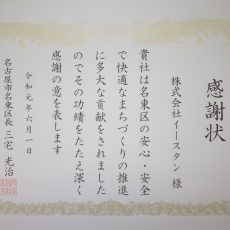 感謝状
株式会社イースタン 様
貴社は名東区の安心・安全
で快適なまちづくりの推進
に多大な貢献をされました
のでその功績をたたえ深く
感謝の意を表します
令和元年六月一日
名古屋市名東区長 三宅 光治